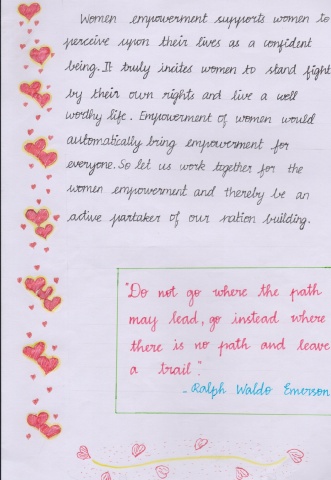 Women empowerment supports women to
perceive upon their lives as a confident
being. It truly incites women to stand fight
by their own rights and live a well
wordhy life. Empowerment of women would
automatically bring empowerment for
everyone. So let us work together for the
women empowerment and thereby be an
active partaker of our nation building.
"Do not go where the path
may lead, go instead where
there is no path and leave
a trail".
- Ralph Waldo Emerson